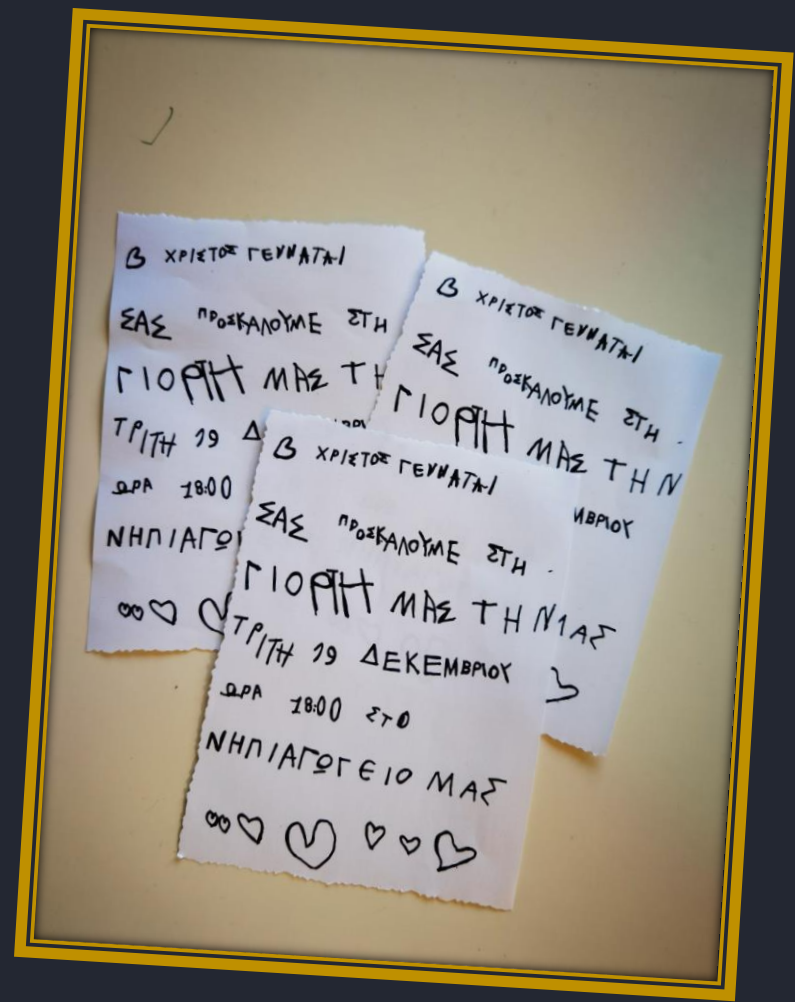 Β ΧΡΙΣΤΟΣ ΓΕΝΝΑΤΑΙ
ΣΑΣ ΠΡΟΣΚΑΛΟΥΜΕ ΣΤΗ
ΓΙΟΡΤΗ ΜΑΣ ΤΗ
ΤΡΙΤΗ 19 Δ
ΩΡΑ 18:00
ΝΗΠΙΑΓΩ
Β ΧΡΙΣΤΟΣ ΓΕΝΝΑΤΑΙ
ΣΑΣ ΠΡΟΣΚΑΛΟΥΜΕ ΣΤΗ
ΓΙΟΡΤΗ ΜΑΣ ΤΗΝ
ΜΒΡΙΟΥ
Β ΧΡΙΣΤΟΣ ΓΕΝΝΑΤΑΙ
ΣΑΣ ΠΡΟΣΚΑΛΟΥΜΕ ΣΤΗ
ΓΙΟΡΤΗ ΜΑΣ ΤΗΝ ΙΑΣ
ΤΡΙΤΗ 19 ΔΕΚΕΜΒΡΙΟΥ
ΩΡΑ 18:00 ΣΤΟ
ΝΗΠΙΑΓΩΓΕΙΟ ΜΑΣ